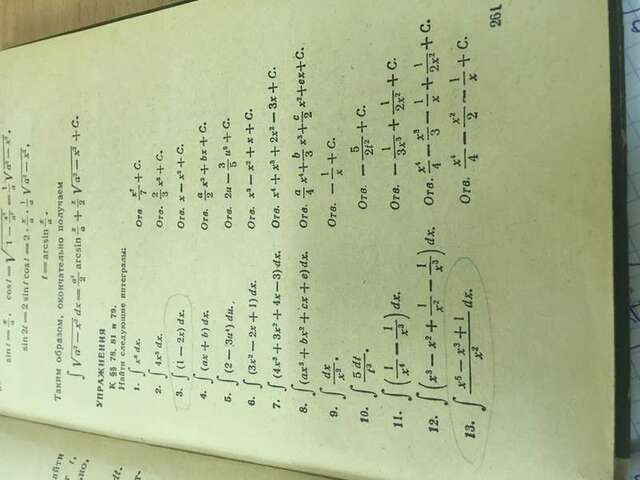 sin t = x/a, cos t = √(1 − x²/a²) = 1/a √(a² − x²),
sin 2t = 2 sin t cos t = 2 · x/a · 1/a √(a² − x²),
t = arcsin x/a.
Таким образом, окончательно получаем
∫ √(a² − x²) dx = a²/2 arcsin x/a + x/2 √(a² − x²) + C.
УПРАЖНЕНИЯ
К §§ 78, 81 и 79.
Найти следующие интегралы:
1. ∫ x⁶ dx. Отв. x⁷/7 + C.
2. ∫ 4x⁵ dx. Отв. 2/3 x⁶ + C.
3. ∫ (1 − 2x) dx. Отв. x − x² + C.
4. ∫ (ax + b) dx. Отв. a/2 x² + bx + C.
5. ∫ (2 − 3u⁴) du. Отв. 2u − 3/5 u⁵ + C.
6. ∫ (3x² − 2x + 1) dx. Отв. x³ − x² + x + C.
7. ∫ (4x³ + 3x² + 4x − 3) dx. Отв. x⁴ + x³ + 2x² − 3x + C.
8. ∫ (ax³ + bx² + cx + e) dx. Отв. a/4 x⁴ + b/3 x³ + c/2 x² + ex + C.
9. ∫ dx/x². Отв. − 1/x + C.
10. ∫ 5 dt/t³. Отв. − 5/2t² + C.
11. ∫ (1/x⁴ − 1/x³) dx. Отв. − 1/3x³ + 1/2x² + C.
12. ∫ (x³ − x² + 1/x² − 1/x³) dx. Отв. x⁴/4 − x³/3 − 1/x + 1/2x² + C.
13. ∫ (x⁵ − x³ + 1)/x² dx. Отв. x⁴/4 − x²/2 − 1/x + C.
261